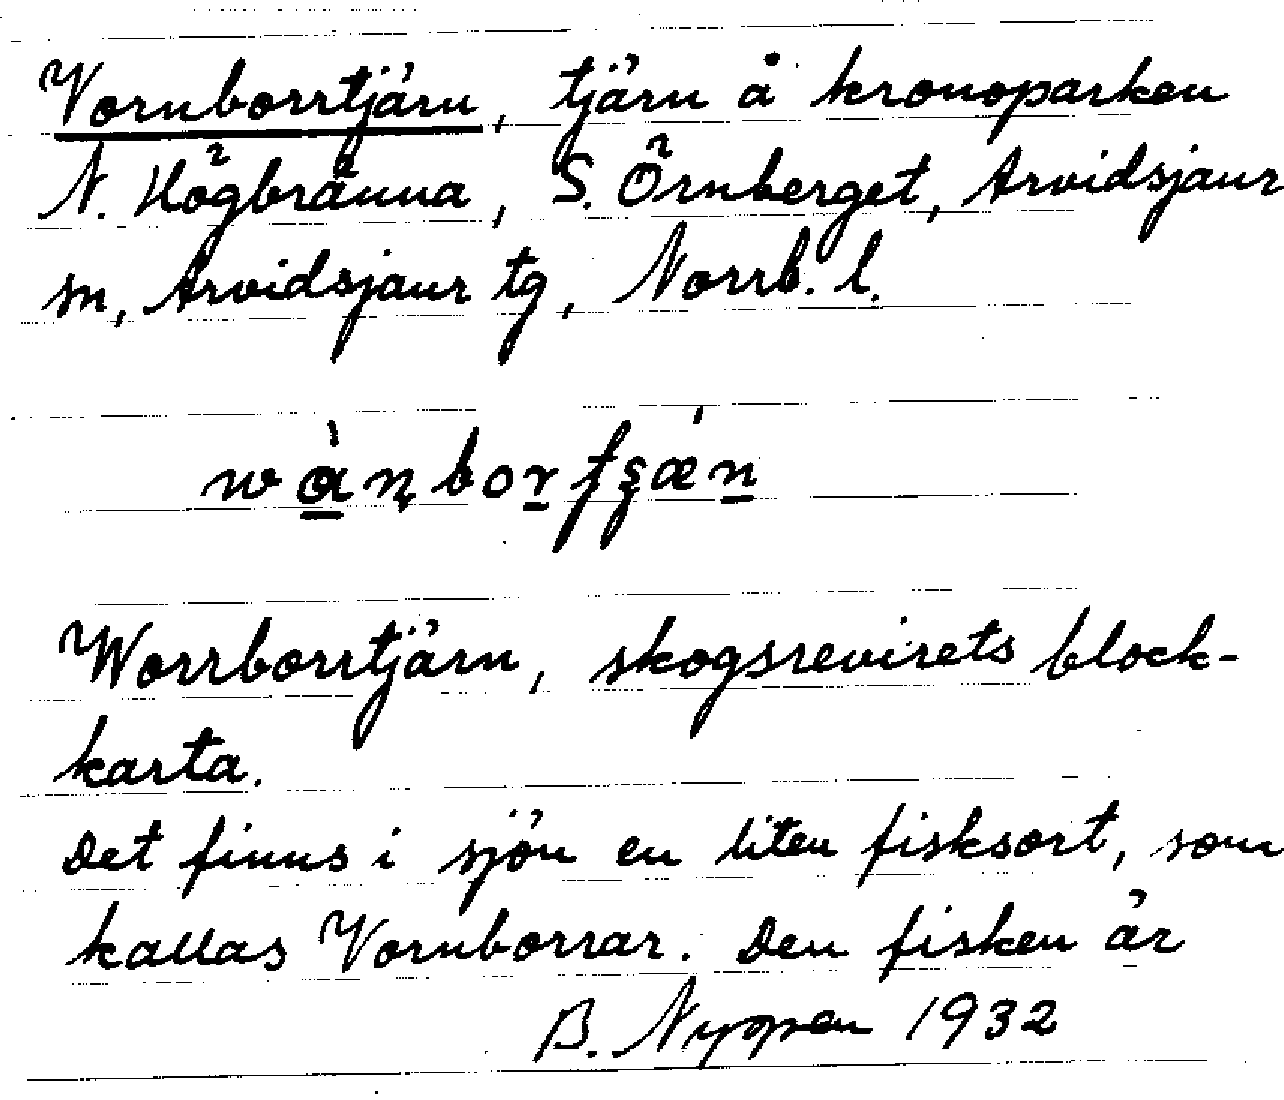 Vornborrtjärn, tjärn å kronoparken
N. Högbränna, S. Örnberget, Arvidsjaur
sn, Arvidsjaur tg, Norrb. l.
Worrborrtjärn, skogsrevirets block-
karta.
Det finns i sjön en liten fisksort, som
kallas Vornborrar. Den fisken är
B. Nyppen 1932